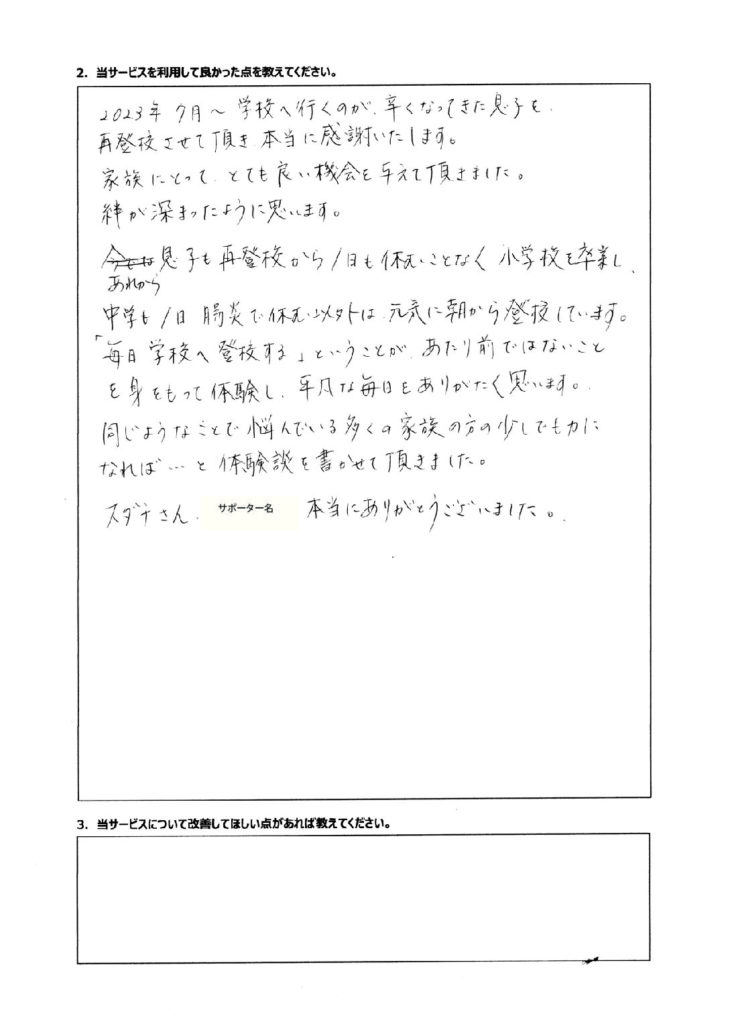 2. 当サービスを利用して良かった点を教えてください。
2023年7月〜学校へ行くのが、辛くなってきた息子を、
再登校させて頂き 本当に感謝いたします。
家族にとって、とても良い機会を与えて頂きました。
絆が深まったように思います。
今では 息子も再登校から1日も休むことなく 小学校を卒業し、
あれから
中学も1日 腸炎で休む以外は、元気に朝から登校しています。
「毎日学校へ登校する」ということが、あたり前ではないこと
を身をもって体験し、平凡な毎日をありがたく思います。
同じようなことで悩んでいる多くの家族の方の少しでも力に
なれば…と体験談を書かせて頂きました。
スダチさん、 サポーター名 本当にありがとうございました。
3. 当サービスについて改善してほしい点があれば教えてください。